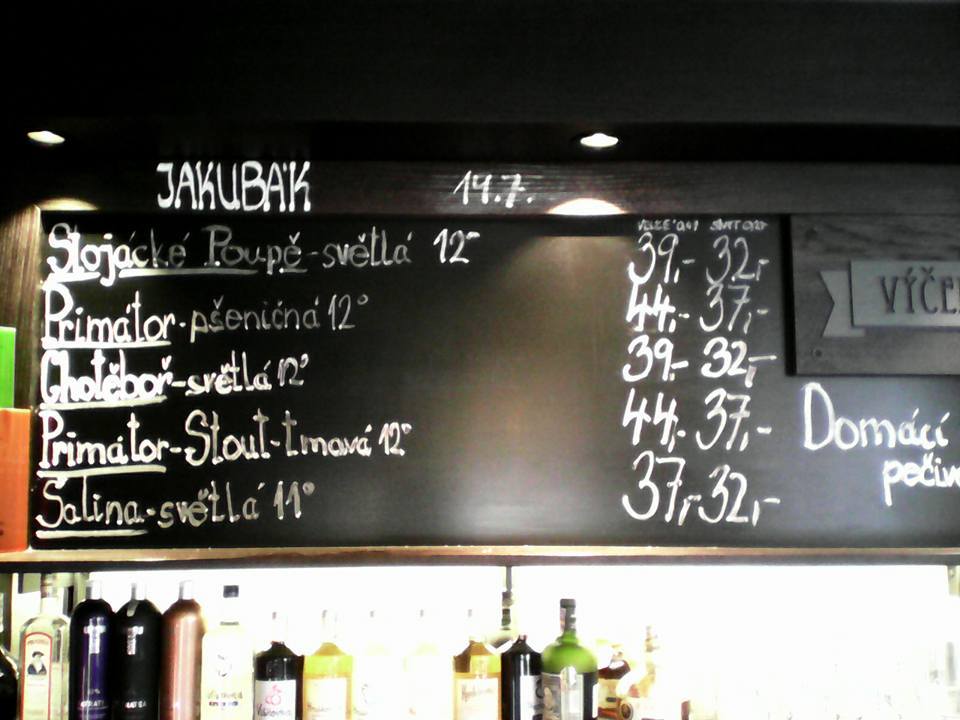 JAKUBÁK 19.7.
Stojácké Poupě-světlá 12° 39,- 32,-
Primátor-pšeničná 12° 44,- 37,-
Chotěboř-světlá 12° 39,- 32,-
Primátor-Stout-tmavá 12° 44,- 37,-
Šalina-světlá 11° 37,- 32,-
Domácí